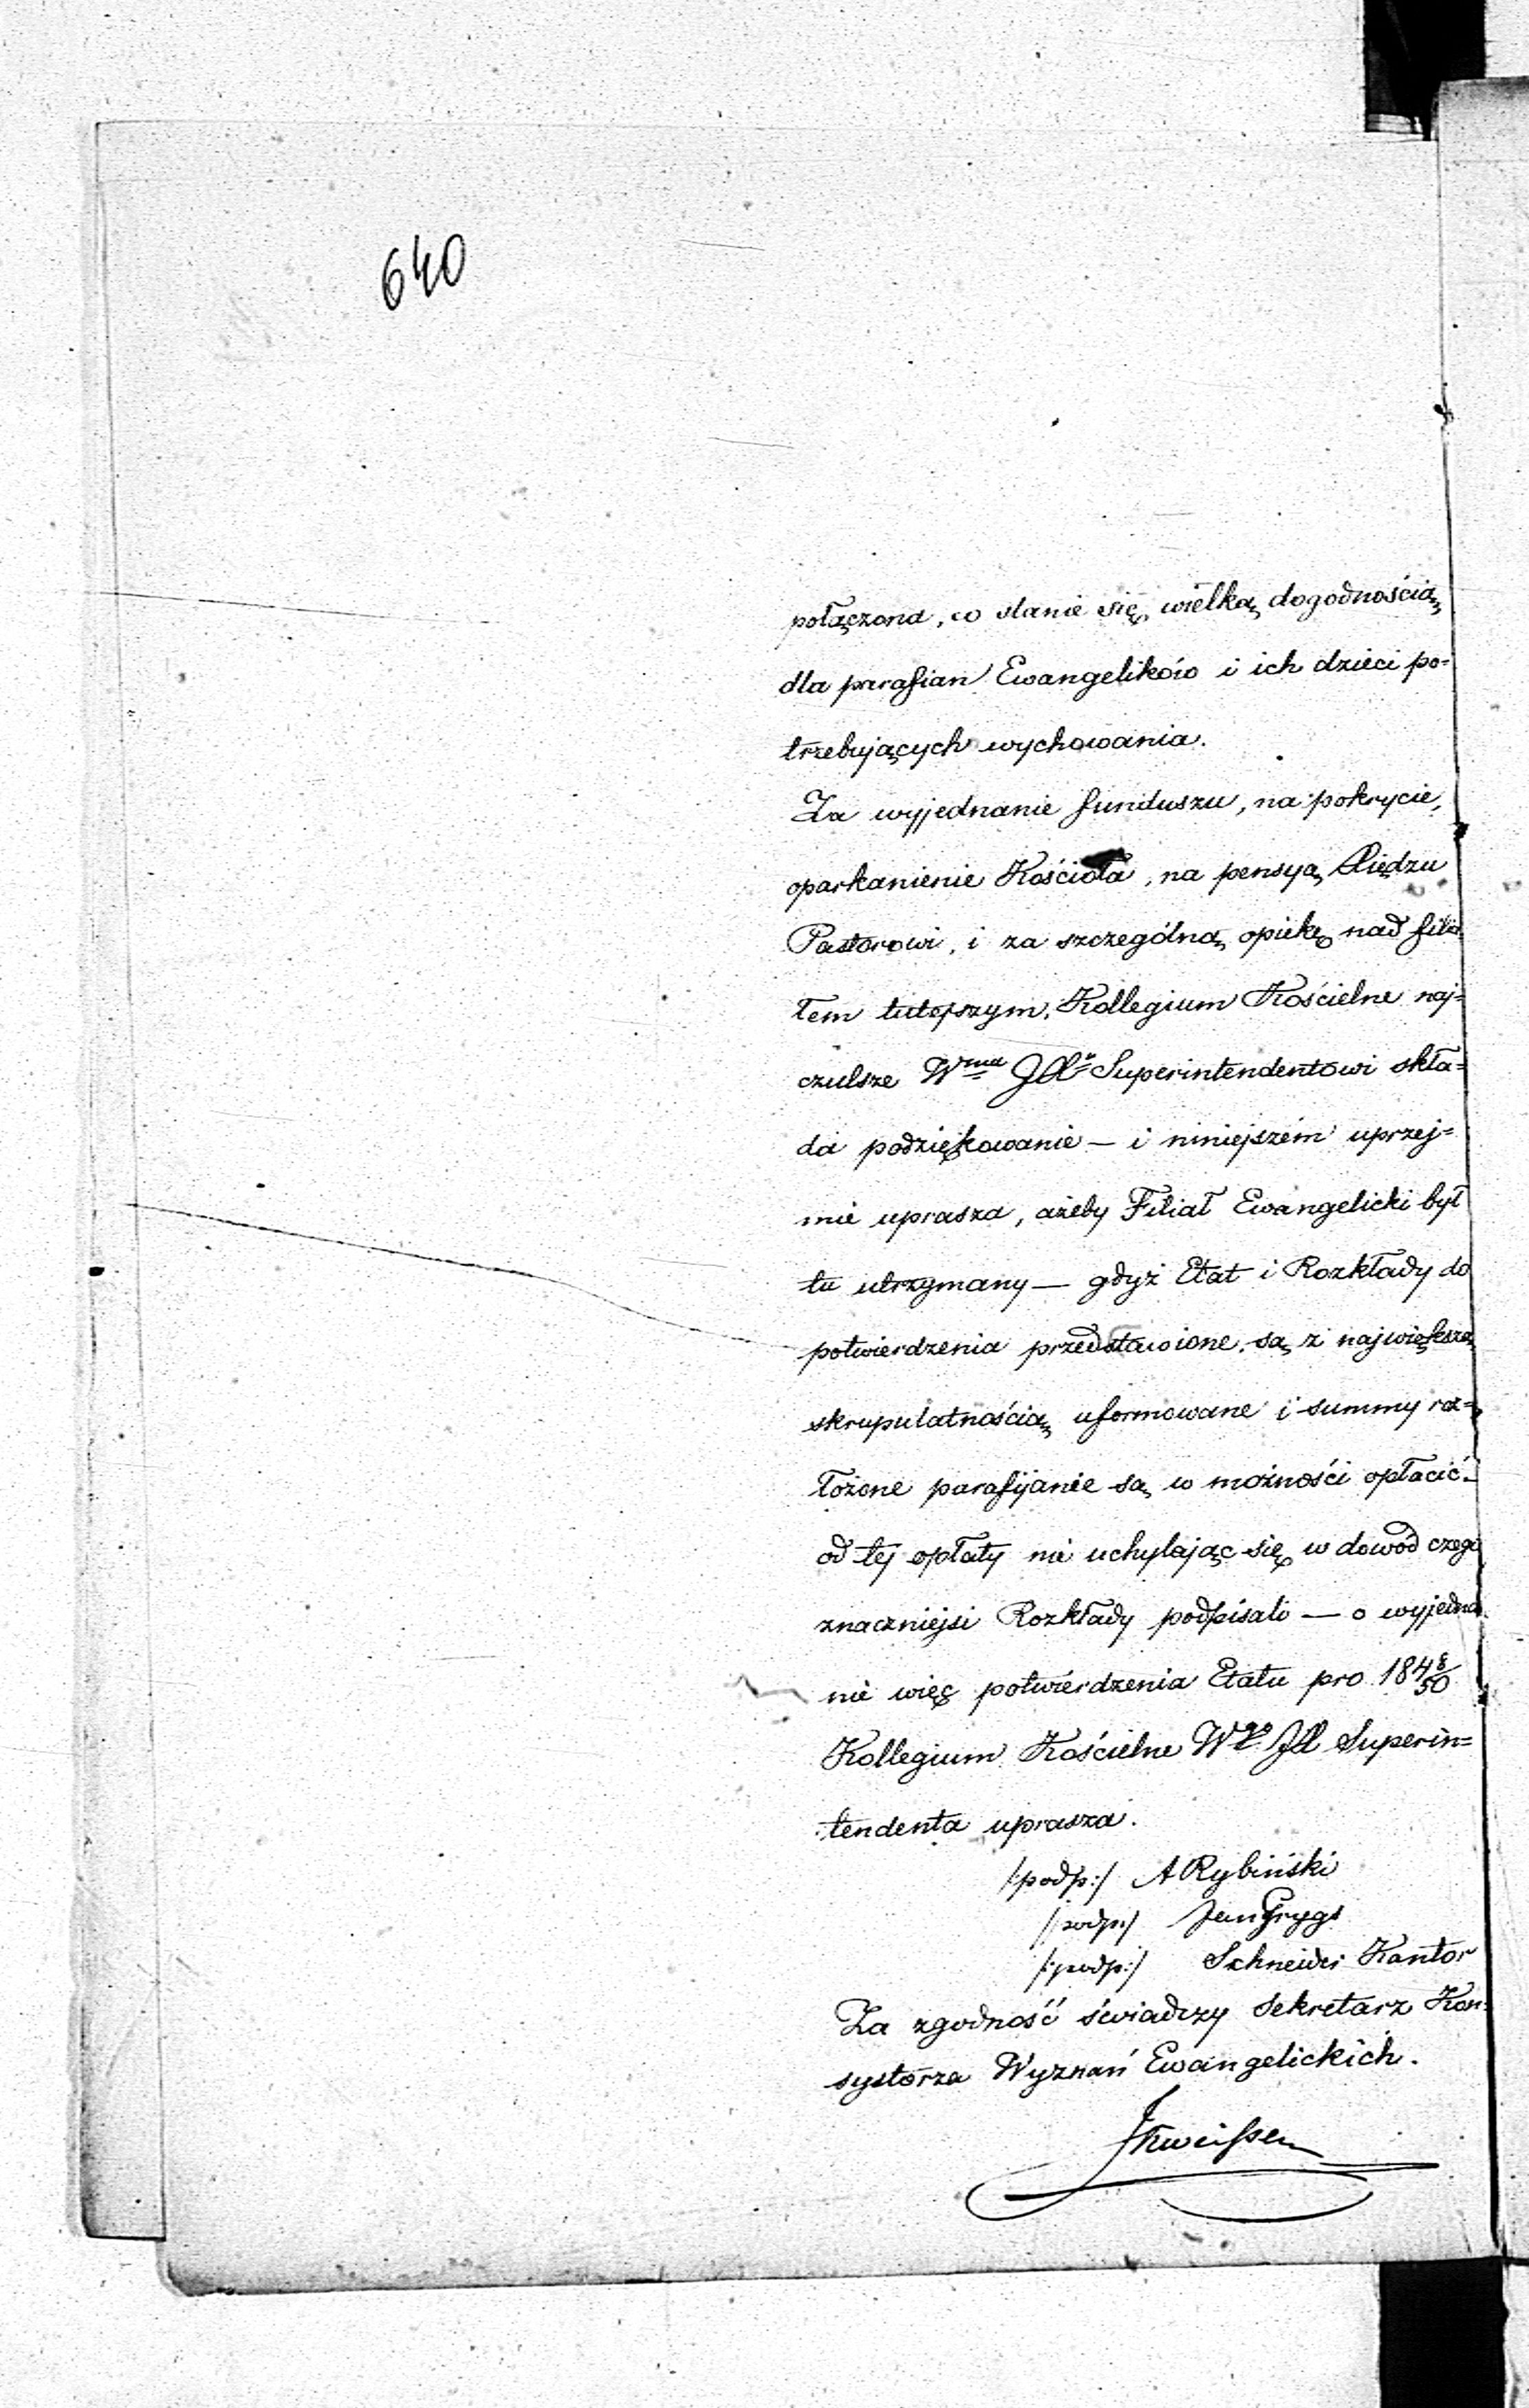 640
połączona, co stanie się wielką dogodnością
dla parafian Ewangelików i ich dzieci po=
trzebujących wychowania.
Za wyjednanie funduszu, na pokrycie,
oparkanienie Kościoła, na pensyą Xiędzu
Pastorowi, i za szczególną opiekę nad filia
łem tutejszym, Kollegium Kościelne naj=
czulsze Wmu JX Superintendentowi skła=
da podziękowanie — i niniejszém uprzej=
mie uprasza, ażeby Filiał Ewangelicki był
tu utrzymany — gdyż Etat i Rozkłady do
potwierdzenia przedstawione, są z największą
skrupulatnością uformowane i summy roz=
łożone parafijanie są w możności opłacić —
od tej opłaty nie uchylając się w dowód czego
znaczniejsi Rozkłady podpisali — o wyjedna
nie więc potwierdzenia Etatu pro 1848/50
Kollegium Kościelne Wgo JX Superin=
tendenta uprasza.
/:podp:/ A Rybiński
/:podp:/ Jan
/:podp:/ Schneider Kantor
Za zgodność świadczy Sekretarz Kon=
systorza Wyznań Ewangelickich.